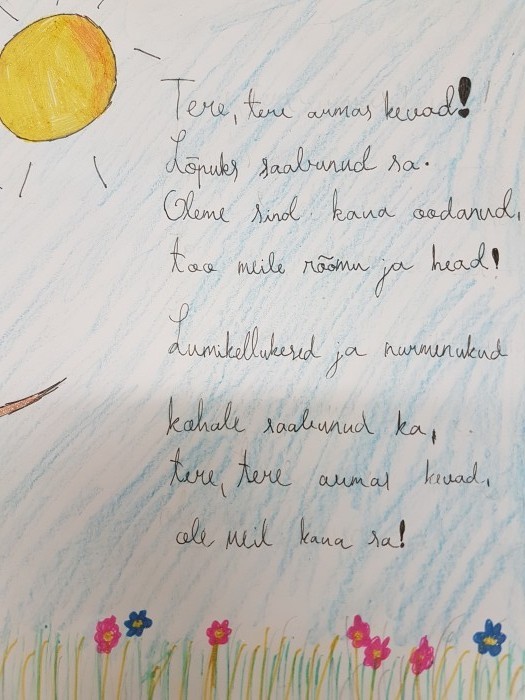 Tere, tere armas kevad!
Lõpuks saabunud sa.
Oleme sind kaua oodanud,
too meile rõõmu ja head!
Lumikellukesed ja nurmenukud
kohale saabunud ka,
tere, tere armas kevad,
ole meil kaua sa!